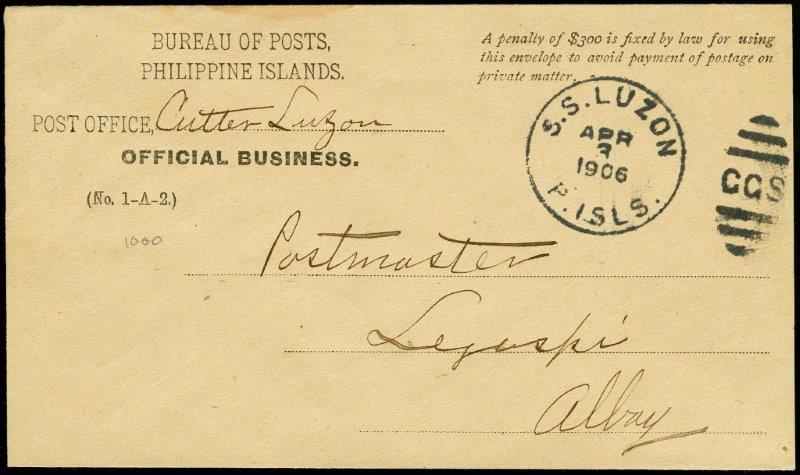 BUREAU OF POSTS,
PHILIPPINE ISLANDS.
POST OFFICE, Cutter Luzon
OFFICIAL BUSINESS.
(No. 1-A-2.)
1000
A penalty of $300 is fixed by law for using
this envelope to avoid payment of postage on
private matter.
S.S. LUZON
APR
3
1906
P. ISLS.
CGS
Postmaster
Legaspi
Albay